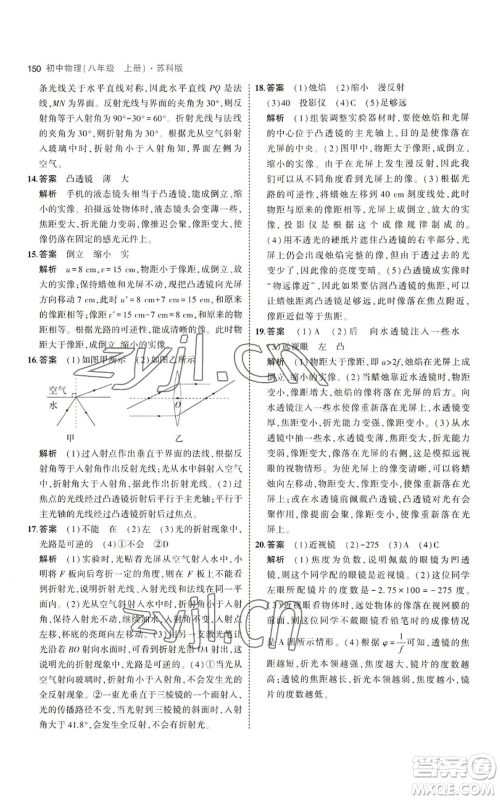 150 初中物理(八年级　上册)·苏科版
条光线关于水平直线对称,因此直线 PQ 是法
线,MN 为界面。反射光线与界面的夹角为 30°,则
反射角等于入射角为 90°-30°=60°,折射光线与界面
的夹角为 30°,则折射角小于入射角,光从空气斜射
入玻璃中时,折射角小于入射角,因此界面的右边是
空气。
14.答案　凸透镜　薄　大
解析　手机的液态镜头相当于凸透镜,能成倒立、缩
小的实像。拍摄远处景物时,液态镜头会变薄一些,
焦距变大,折光能力变弱,使像距变大,使远处景物成
像仍落在固定的感光元件上。
15.答案　倒立　缩小　实
解析　u=8 cm,v=15 cm,将蜡烛向远离凸透镜光屏
方向移动 7 cm,u′=8 cm+7 cm=15 cm,物距等于
原来的像距,像距等于原来的物距,此时物距大于像
距,成倒立、缩小的实像。
16.答案　(1)如图甲所示　(2)如图乙所示
空气
水
甲
乙
解析　(1)过入射点作出垂直于界面的法线,入射角
等于反射角,画出反射光线;光从水中斜射入空气中
时,折射角大于入射角,画出大致折射光线。(2)过
焦点的光线经过凸透镜后平行于主光轴;平行于主光
轴的光线经凸透镜后过焦点。
17.答案　(1)不能　在　(2)左　(3)光的折射现象中,
光路是可逆的　(4)①不会　②D
解析　(1)光从空气斜射入水中时,将光屏的 F 板向
后转动,则在 F 板上不能观察到折射光线,但折射光
线、入射光线和法线仍在同一平面内。(2)入射角保
持入射光方向不变,继续向水槽内加水,入射点向左
上方移动,折射角大小不变,则水槽底部的光斑将向
左移。(3)用另一支激光笔发出的光沿 BO 方向从水
中射向空气,折射光线沿 OA 射出,说明在光的折射
现象中,光路是可逆的。(4)①光从空气斜射入水中
时,折射角小于入射角,折射光线始终存在,不会发生
全反射现象。②一束光垂直三棱镜的一个面射入,光
的传播路径不发生改变,射到三棱镜的另一面时,入
射角大于 41.8°,入射角等于反射角,没有折射光。
18.答案　(1)烛焰　(2)缩小　漫反射
(3)40　投影仪　(4)C　(5)足够远
解析　(1)组装调整实验器材时,要使烛焰和光屏
的中心位于凸透镜的主光轴上,目的是使像落在光
屏中央。(2)图甲中,物距大于像距,成倒立、
缩小的实像。由于像在光屏上发生漫反射,无论从
哪个角度都能看到光屏上的像。(3)为了在光屏上得到
放大的像,可以将蜡烛移到 40 cm 刻度处,
投影仪是根据这个成像规律制成的。
(4)用不透光的硬纸片遮住凸透镜的右半部分,光
屏上仍能出现烛焰完整的像,但由于透过的光
变少了,所以像变暗了。(5)凸透镜成实像时
“物远像近”,所以要估测凸透镜的焦距大小,
蜡烛应当离凸透镜足够远,此时像的位置在焦点
附近,像距近似等于焦距。
19.答案　(1)A　(2)后　向水透镜注入一些水
(3)远视眼　左　凸
解析　(1)物距大于像距,即 u>2f,像在光屏上成
倒立、缩小的实像。(2)当蜡烛靠近透镜时,物距
减小,像距增大,像成在光屏后方;为使像重新落在
光屏上,应使焦距变小,折光能力变强,需向水透
镜内注入一些水,使像重新落在光屏上。(3)因为
焦距变大,折光能力变弱,像落在光屏后,是远视
眼的成因。为使光屏上的像清晰,应使光屏远离
透镜即向左移动。为使像重新落在光屏上,也可以
在蜡烛和透镜之间加一个能使光线会聚的凸透镜。
20.答案　(1)近视镜　(2)-275　(3)A　(4)C
解析　(1)焦度为负数,表示该同学配戴的眼镜为
凹透镜,用来矫正近视眼。(2)由题意可知,这位同学
左眼所配镜片的度数是 -2.75×100=-275度。
(3)因近视眼看物体时,远处物体的像落在视网膜的
前方,所以,这位同学不戴眼镜看物体时的成像情况
是 A 图所示情形。(4)由 φ=1/f 可知,透镜的焦
距越短,折光本领越强,焦度越大,镜片的度数越
高;焦距越长,折光本领越弱,焦度越小,镜片的度数
越低。
zyjl.cn
zyjl.cn
答案圈
MXQE.COM